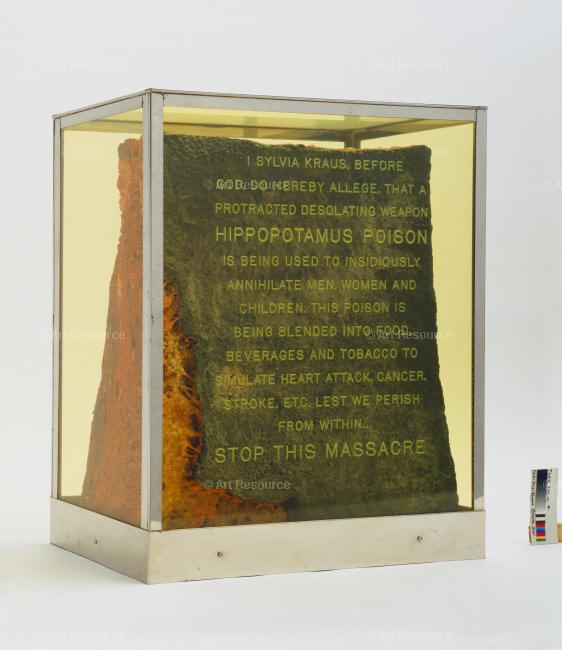 Art Resource
Art Resource
Art Resource
I SYLVIA KRAUS, BEFORE
GOD, DO HEREBY ALLEGE, THAT A
PROTRACTED DESOLATING WEAPON
HIPPOPOTAMUS POISON
IS BEING USED TO INSIDIOUSLY
ANNIHILATE MEN, WOMEN AND
CHILDREN. THIS POISON IS
BEING BLENDED INTO FOOD,
BEVERAGES AND TOBACCO TO
SIMULATE HEART ATTACK, CANCER,
STROKE, ETC. LEST WE PERISH
FROM WITHIN...
STOP THIS MASSACRE
Art Resource
Art Resource
Art Resource
Art Resource
Art Resource
Art Resource